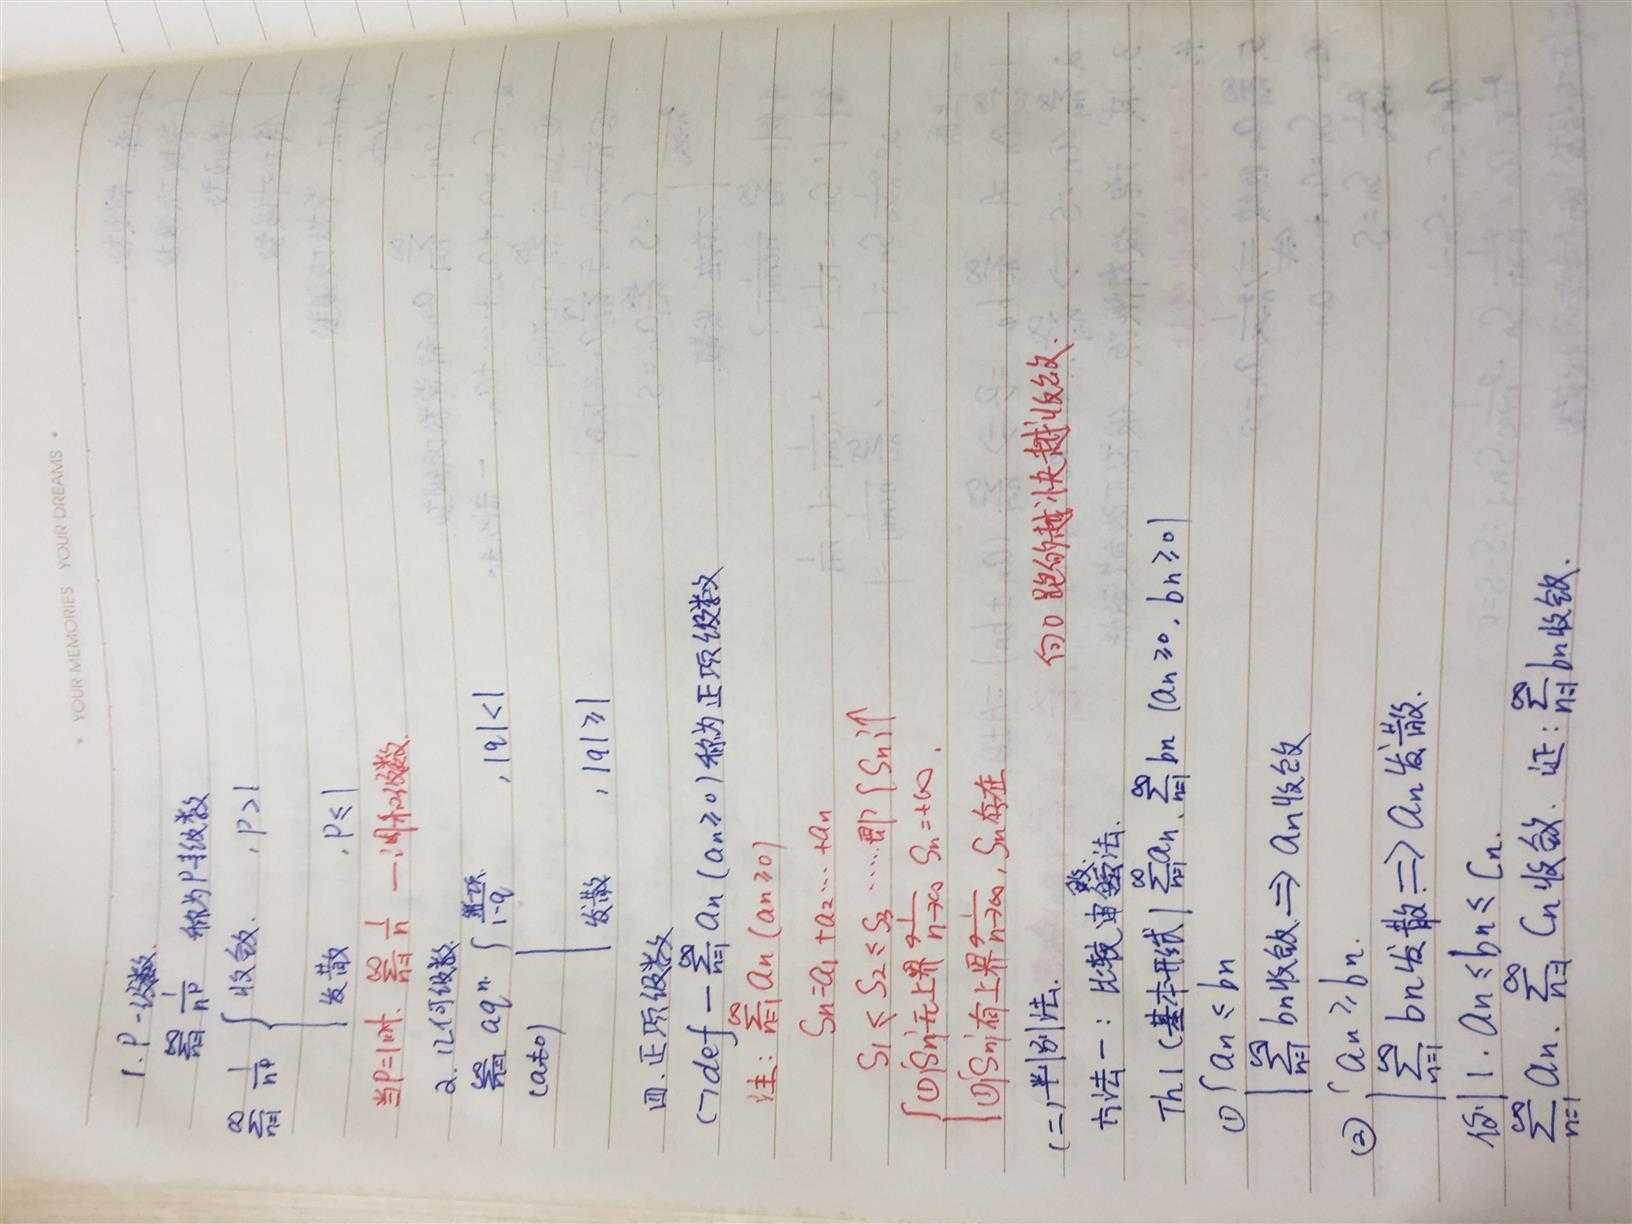 • YOUR MEMORIES YOUR DREAMS •
1. P-级数.
∑_{n=1}^{∞} 1/n^p 称为P-级数
∑_{n=1}^{∞} 1/n^p { 收敛. , P>1
发散 , P≤1
当P=1时. ∑_{n=1}^{∞} 1/n —调和级数.
2. 几何级数
∑_{n=1}^{∞} aq^n { 第一项/1-q , |q|<1
(a≠0)
发散 , |q|≥1
四. 正项级数
(一) def — ∑_{n=1}^{∞} an (an≥0) 称为正项级数
注: ∑_{n=1}^{∞} an (an≥0)
Sn=a1+a2……+an
S1≤S2≤S3……即{Sn}↑
{ ①{Sn}无上界 lim_{n→∞} Sn=+∞.
②{Sn}有上界 lim_{n→∞} Sn存在
(二) 判别法. 向0跑的越快越收敛.
方法一: 比较审敛法.
Th1 (基本形式) ∑_{n=1}^{∞} an. ∑_{n=1}^{∞} bn (an≥0. bn≥0)
① { an≤bn
∑_{n=1}^{∞} bn收敛 ⇒ an收敛
② { an≥bn.
∑_{n=1}^{∞} bn发散 ⇒ an发散.
例1. an≤bn≤Cn.
∑_{n=1}^{∞} an. ∑_{n=1}^{∞} Cn收敛. 证: ∑_{n=1}^{∞} bn收敛.